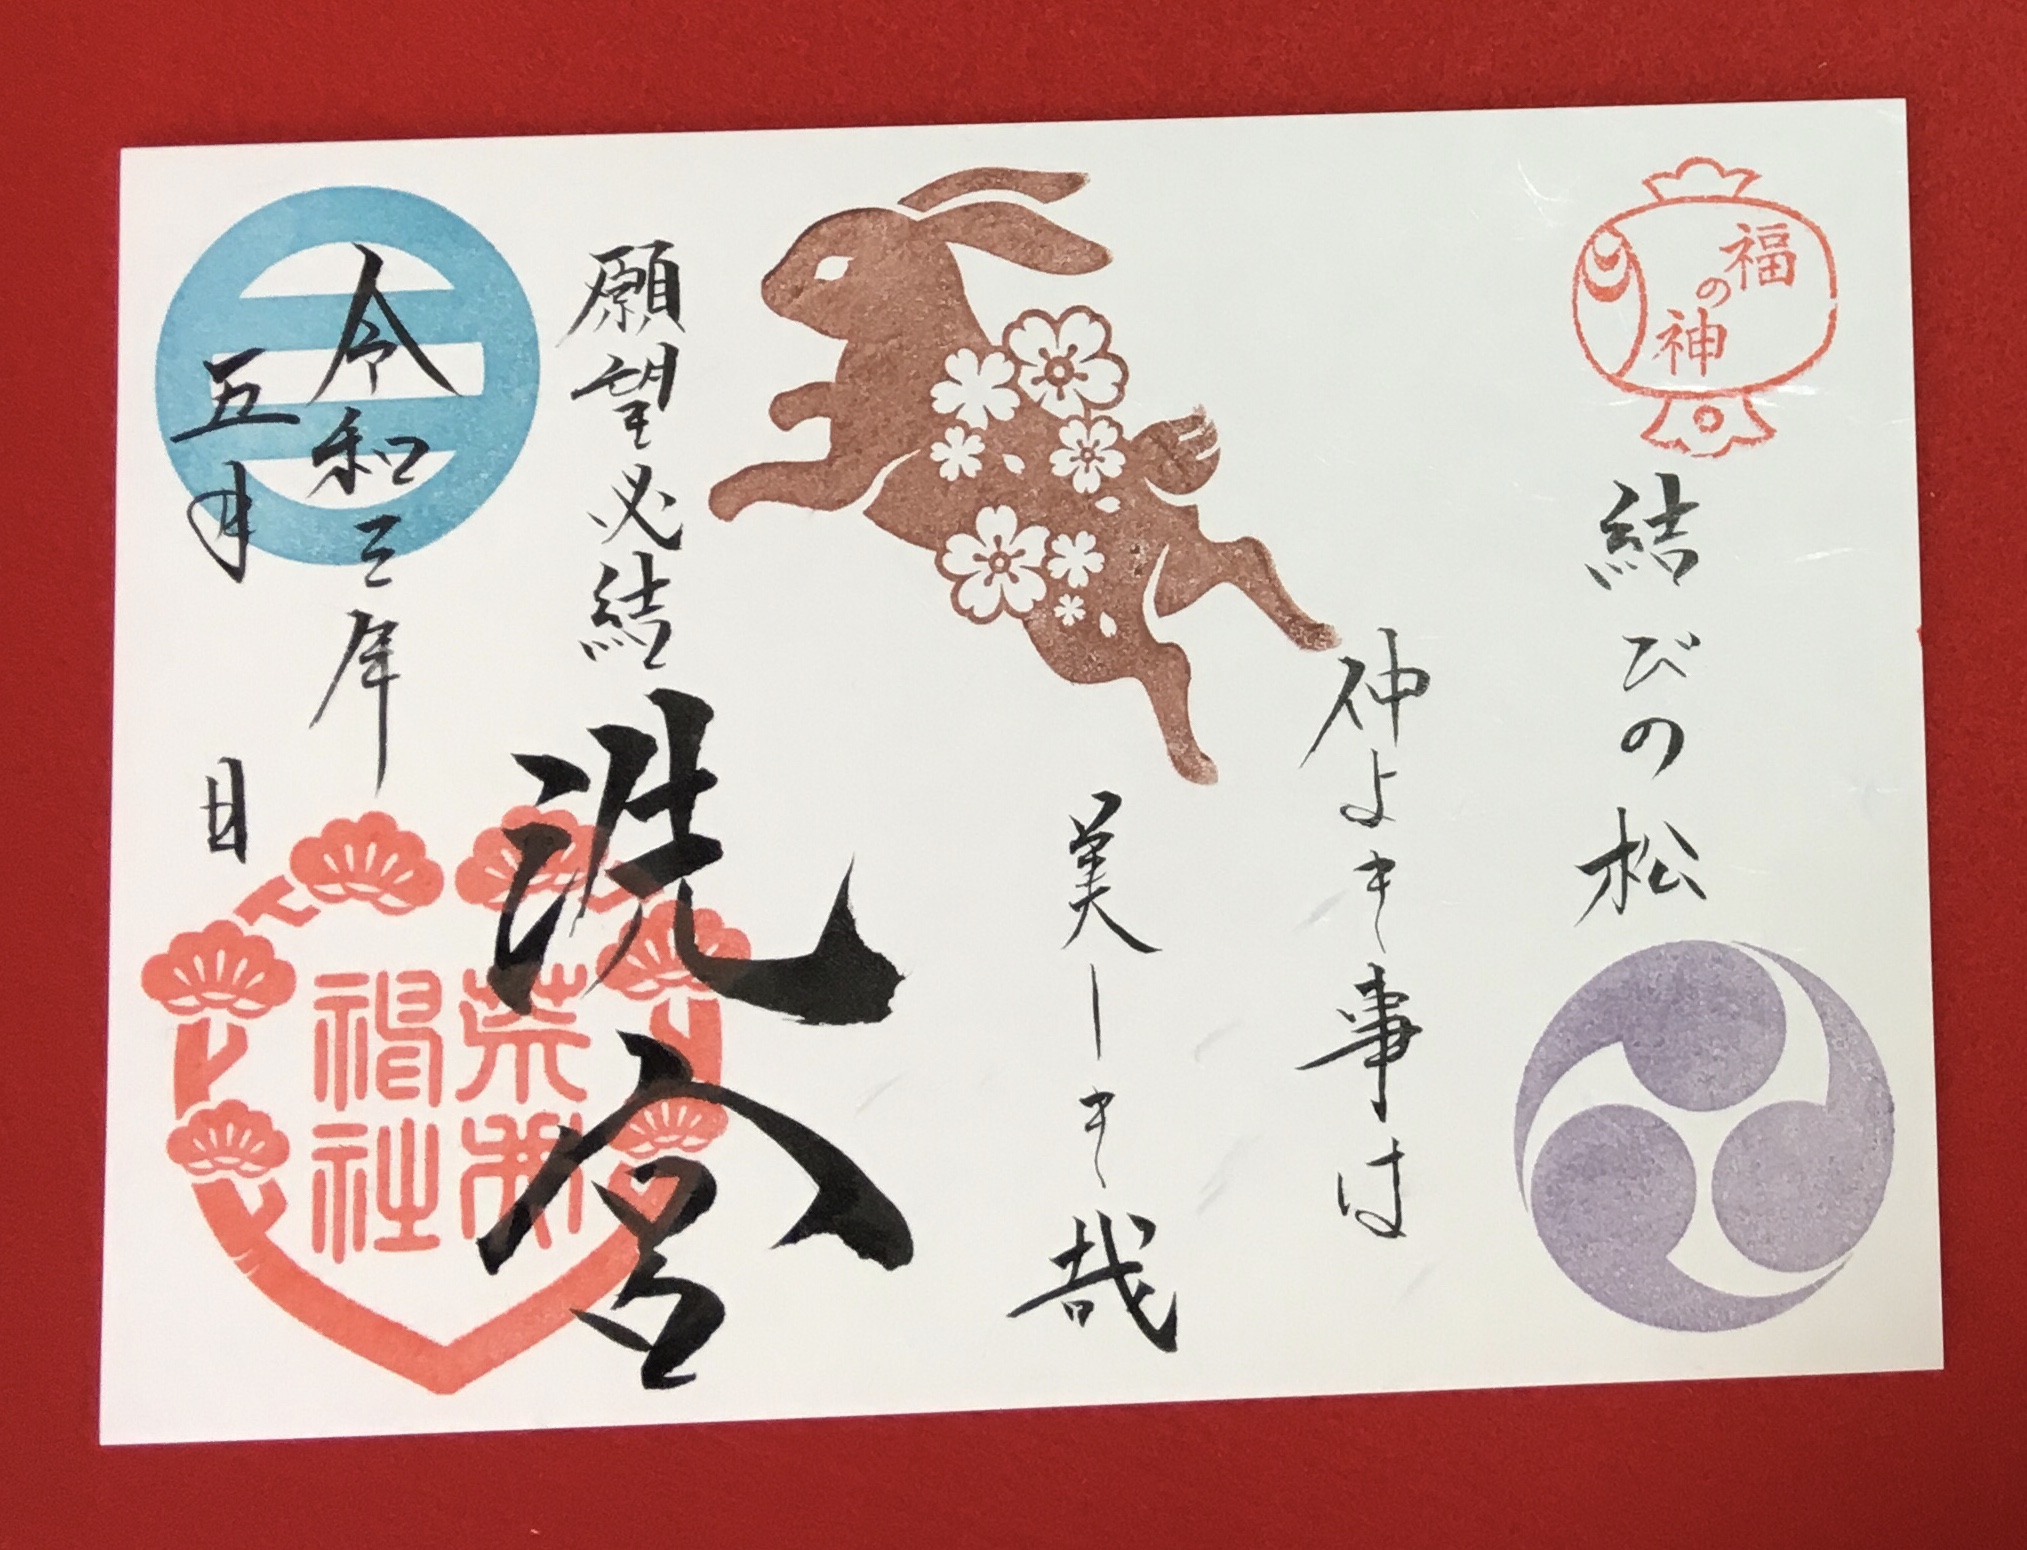 福の神
結びの松
仲よき事は
美しき哉
願望必結
洗宮
令和三年
五月 日
荒井
神社